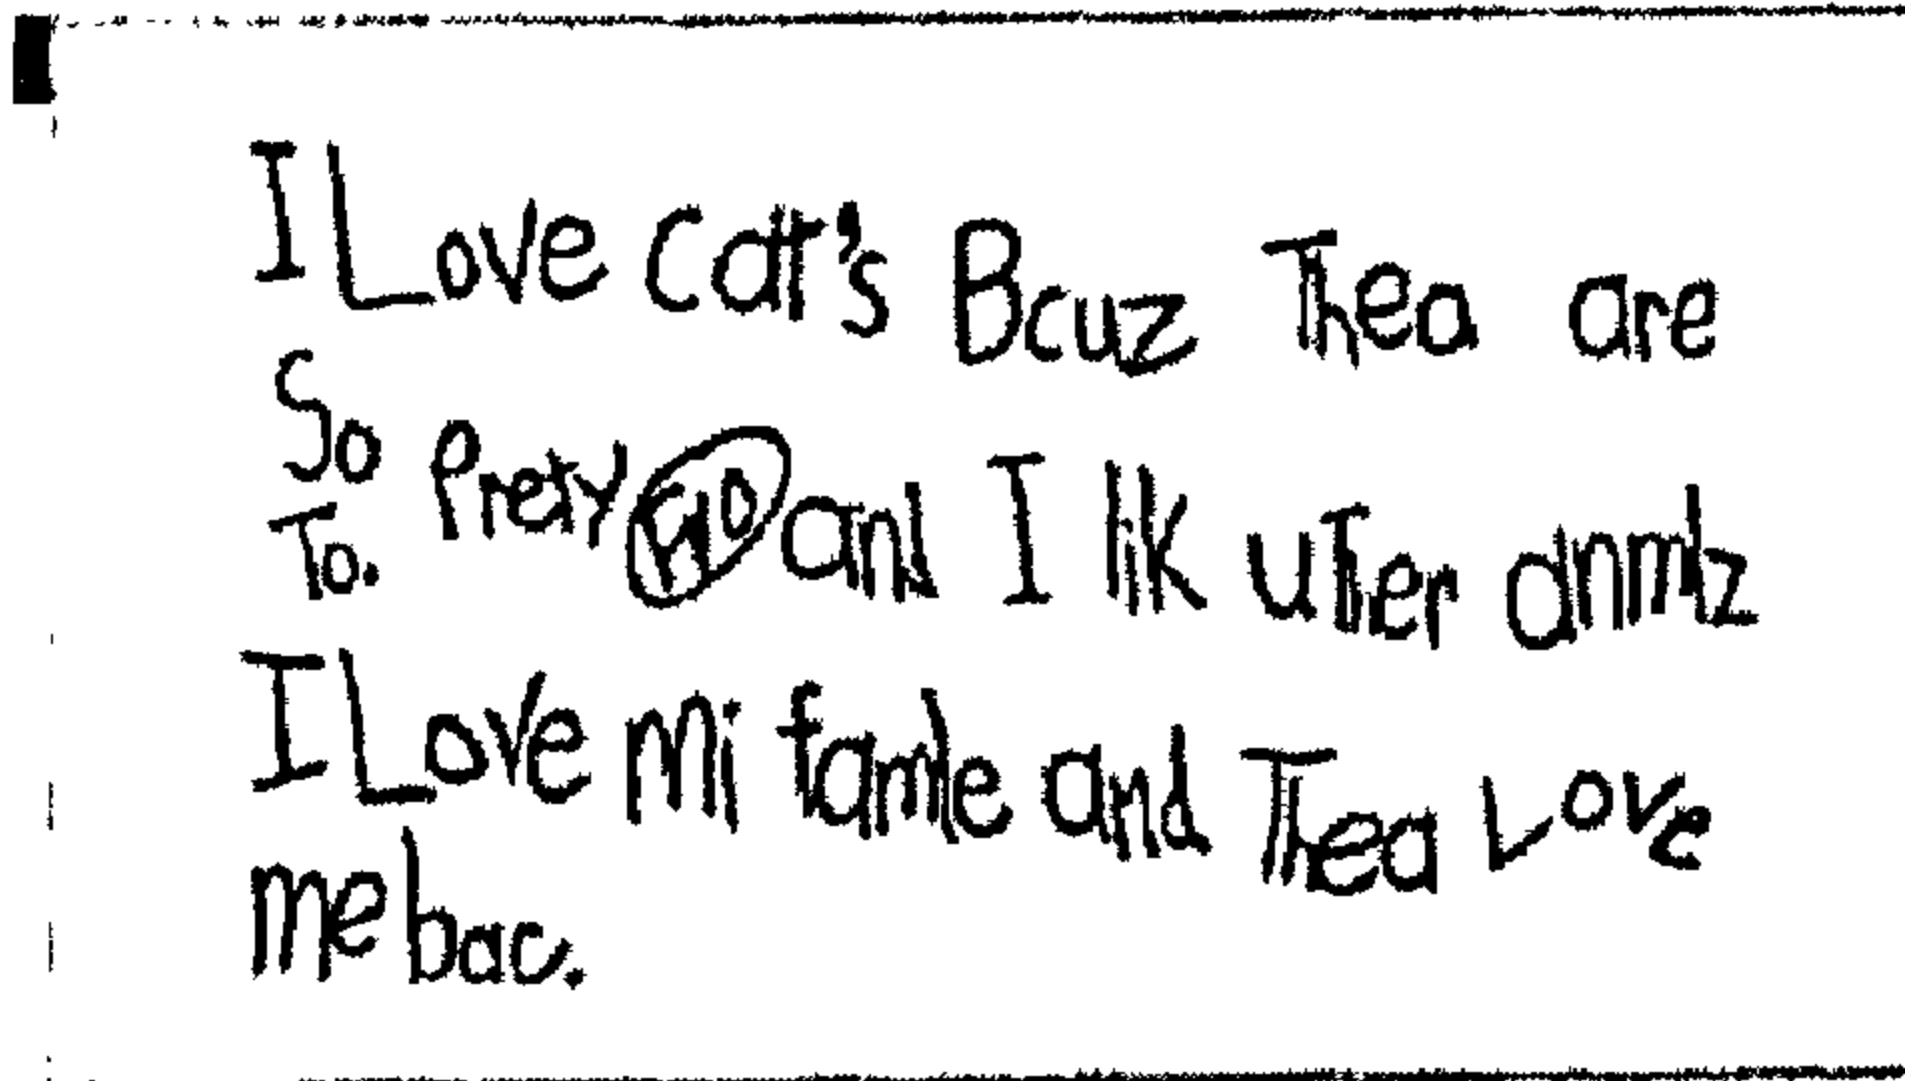 I Love cat's Bcuz Thea are
So Prety and I lik uTher anmlz
To.
I Love mi famle and Thea Love
me bac.